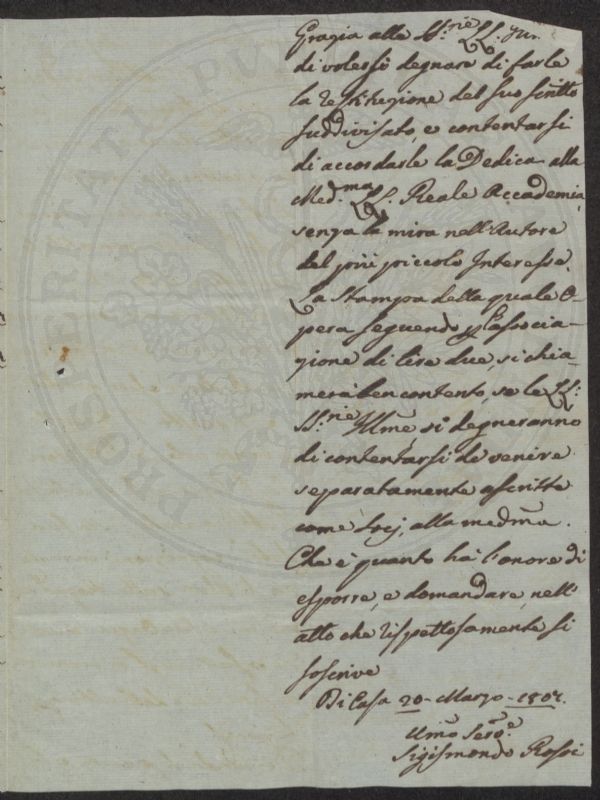 Grazia alle SS.rie LL.
di volersi degnare di farle
la restituzione del suo scritto
suddivisato, e contentarsi
di accordarle la Dedica alla
Med.ma LL. Reale Accademia,
senza la mira nell'Autore
del più piccolo Interesse.
La Stampa della quale O-
pera seguendo p l'associa-
zione di lire due, si chia-
merà ben contento, se le LL:
SS.rie Illme, si degneranno
di contentarsi de venire
separatamente ascritte
come Socj, alla medma.
Che è quanto hà l'onore di
esporre, e domandare, nell'
atto che rispettosamente si
soscrive
Di Casa 20- Marzo-
Umo Servo.e
Sigismondo Rossi
PROSPERITATI PUBLICAE